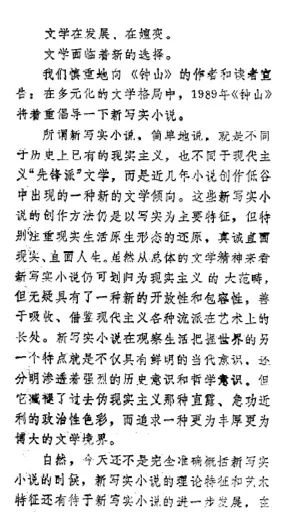 文学在发展、在嬗变。
文学面临着新的选择。
我们慎重地向《钟山》的作者和读者宣
告：在多元化的文学格局中，1989年《钟山》
将着重倡导一下新写实小说。
所谓新写实小说，简单地说，就是不同
于历史上已有的现实主义，也不同于现代主
义“先锋派”文学，而是近几年小说创作低谷
中出现的一种新的文学倾向。这些新写实小
说的创作方法仍是以写实为主要特征，但特
别注重现实生活原生形态的还原，真诚直面
现实、直面人生。虽然从总体的文学精神来看
新写实小说仍可划归为现实主义的大范畴，
但无疑具有了一种新的开放性和包容性，善
于吸收、借鉴现代主义各种流派在艺术上的
长处。新写实小说在观察生活把握世界的另
一个特点就是不仅具有鲜明的当代意识，还
分明渗透着强烈的历史意识和哲学意识。但
它减褪了过去伪现实主义那种直露、急功近
利的政治性色彩，而追求一种更为丰厚更为
博大的文学境界。
自然，今天还不是完全准确概括新写实
小说的时候，新写实小说的理论特征和艺术
特征还有待于新写实小说的进一步发展，在